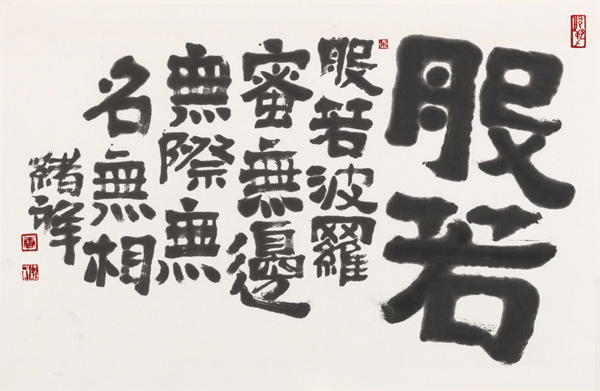 般若
般若波羅
蜜無邊
無際無
名無相